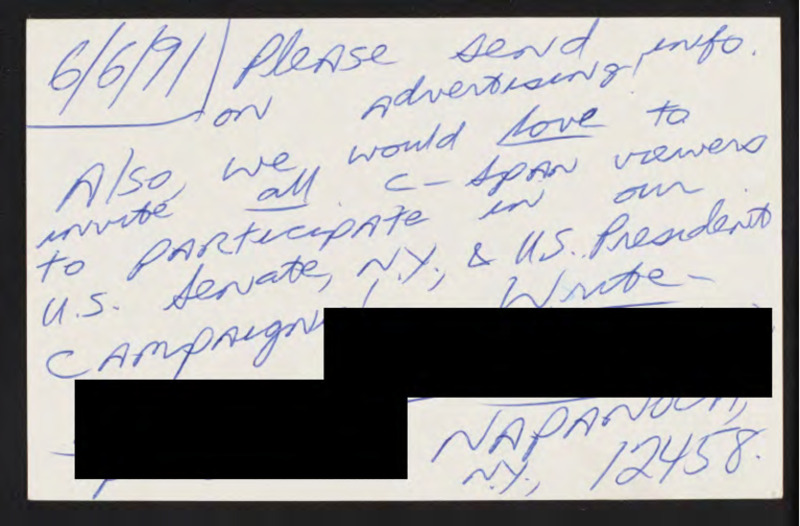 6/6/91 Please send info.
on advertising!
Also, we would love to
invite all C-Span viewers
to participate in our
U.S. Senate, N.Y., & U.S. President
Campaigns! Write-
NAPANOCH,
N.Y., 12458.